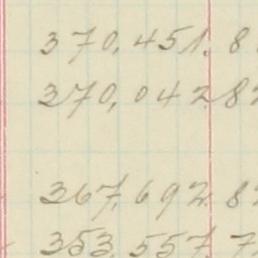 370,451.8
270,042 82
367,692 82
353,557.7